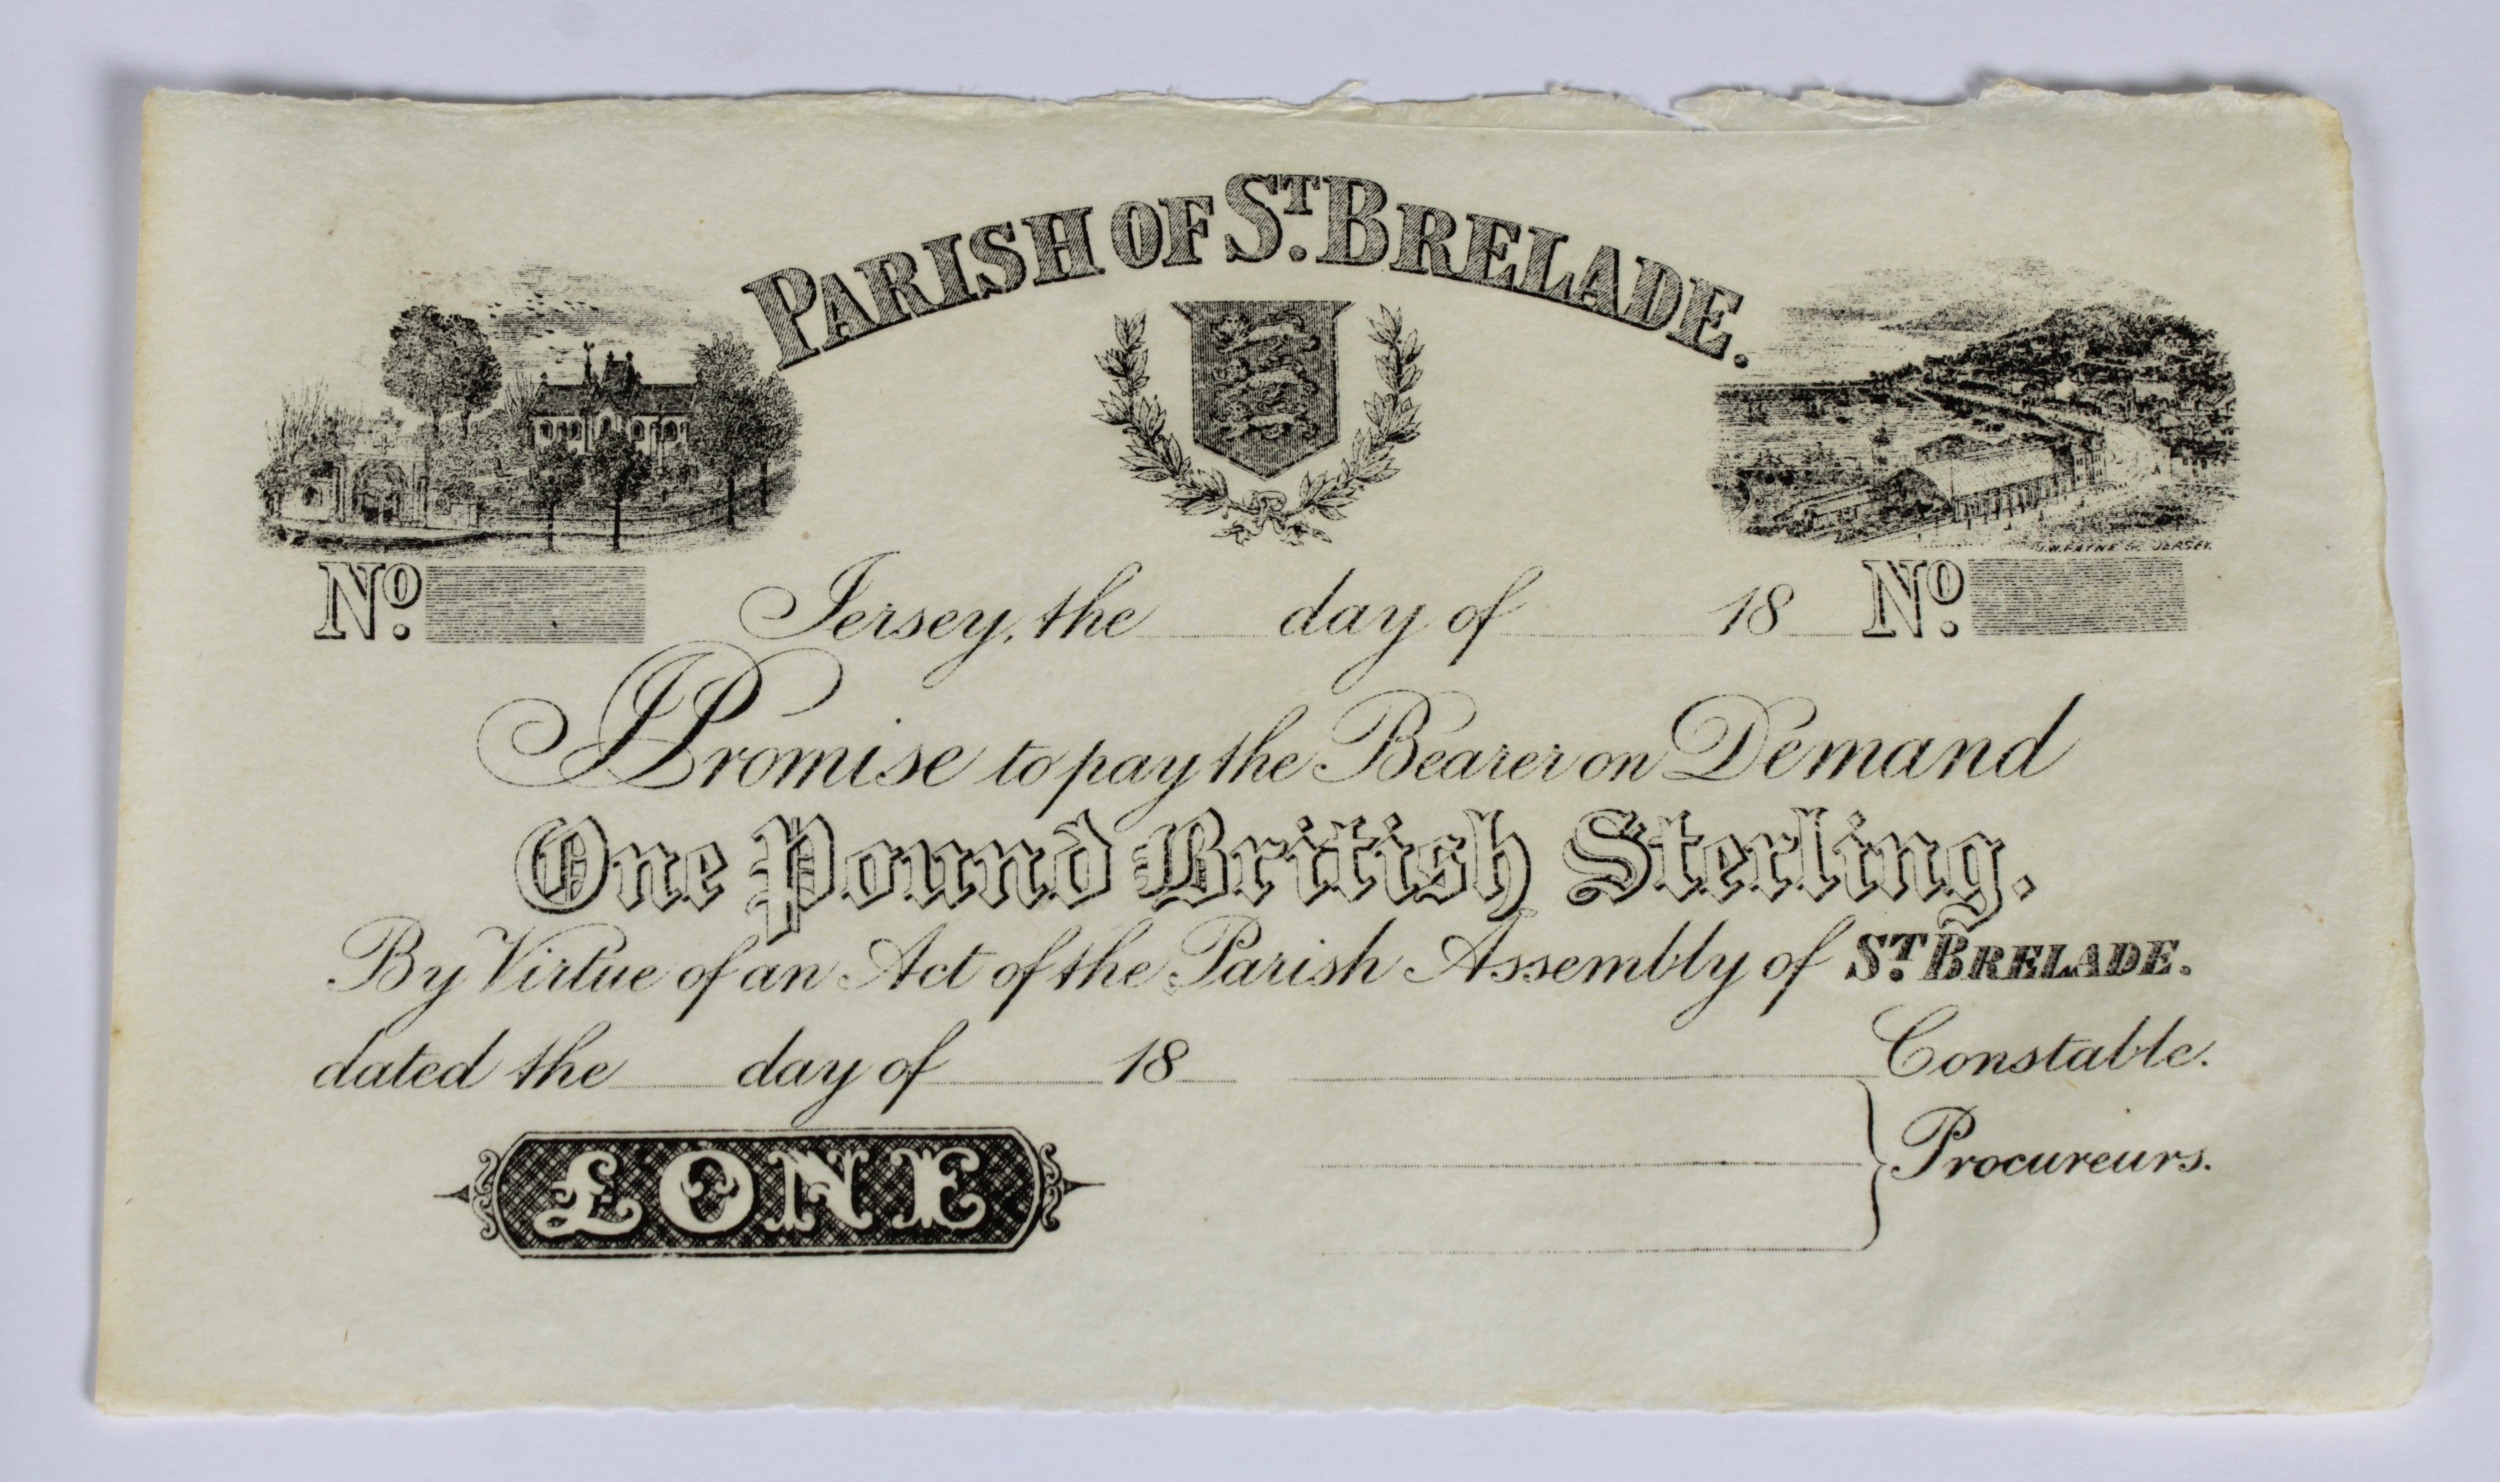 PARISH OF ST. BRELADE.
J.W. PAYNE Sc JERSEY.
No. Jersey, the day of 18 No.
I Promise to pay the Bearer on Demand
One Pound British Sterling.
By Virtue of an Act of the Parish Assembly of ST. BRELADE.
dated the day of 18 Constable.
£ONE Procureurs.